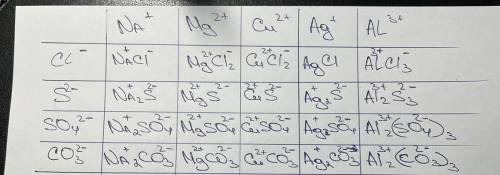 Na⁺ Mg²⁺ Cu²⁺ Ag⁺ AL³⁺
CL⁻ Na⁺Cl⁻ Mg²⁺Cl₂⁻ Cu²⁺Cl₂⁻ AgCl Al³⁺Cl₃⁻
S²⁻ Na₂⁺S²⁻ Mg²⁺S²⁻ Cu²⁺S²⁻ Ag₂⁺S²⁻ Al₂³⁺S₃²⁻
SO₄²⁻ Na₂⁺SO₄²⁻ Mg²⁺SO₄²⁻ Cu²⁺SO₄²⁻ Ag₂⁺SO₄²⁻ Al₂³⁺(SO₄)₃²⁻
CO₃²⁻ Na₂⁺CO₃²⁻ Mg²⁺CO₃²⁻ Cu²⁺CO₃²⁻ Ag₂⁺CO₃²⁻ Al₂³⁺(CO₃)₃²⁻